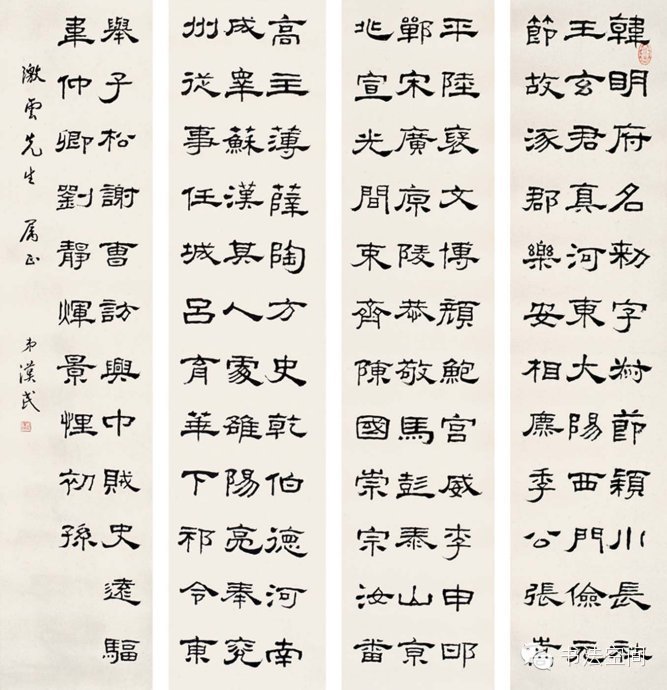 韓明府名勑字叔節穎川長社
王玄君真河東大陽西門儉元
節故涿郡樂安相麃季公張
平陸褎文博顏鮑宮威李申邯
鄲宋廣原陵恭敬馬彭泰山京
兆宣光間束齊陳國崇宗汝番
高主薄薛陶方史乾伯德河南
成睾蘇漢其人處雒陽亮奉兖
州從事任城呂育華下祁令東
舉子松謝曹訪興中賊史遠驅
車仲卿劉靜煇景悝初孫
澂雲先生 屬正
弟漢民
书法空间